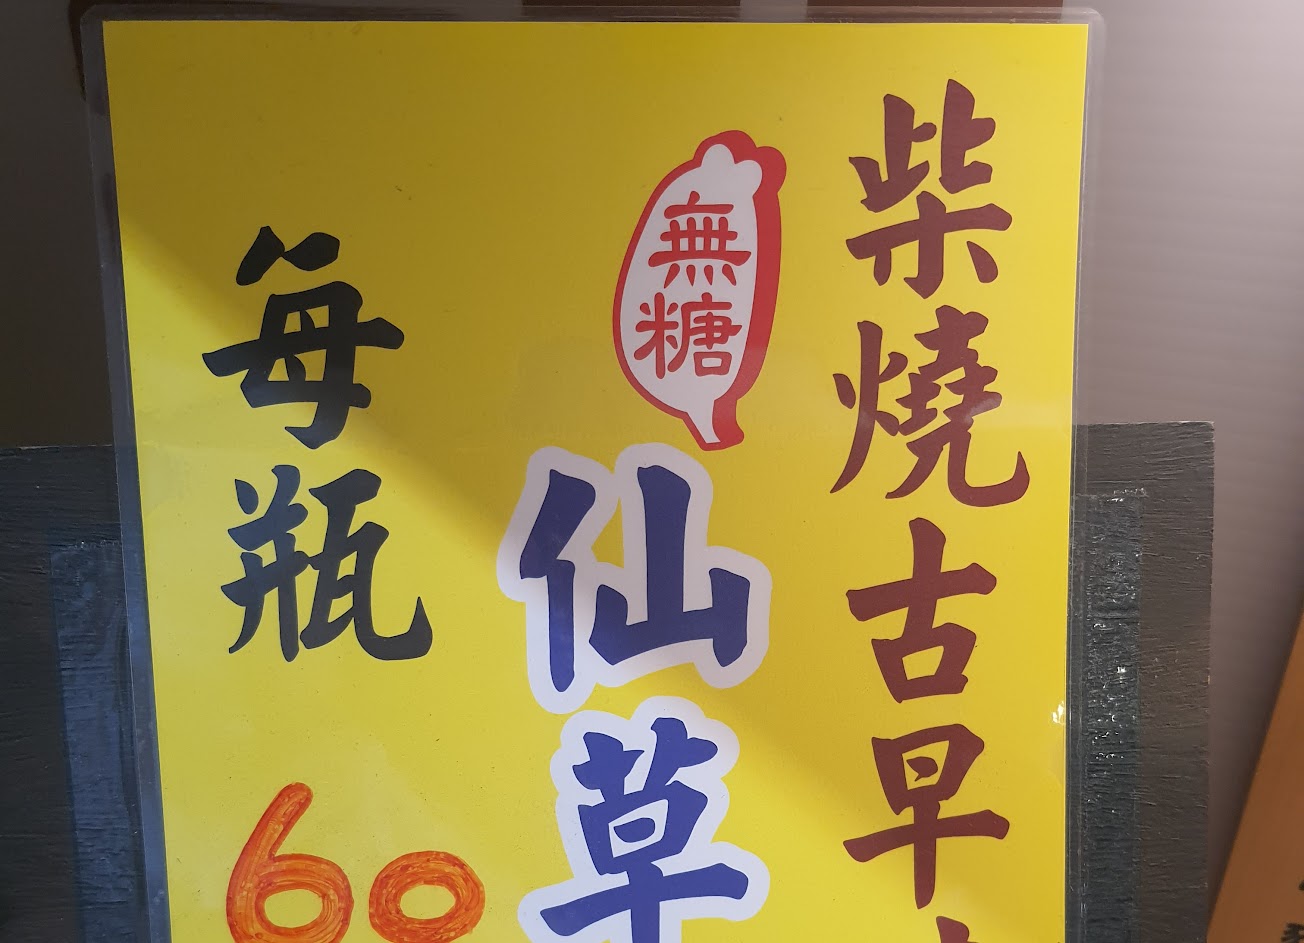 柴燒古早
無糖
仙草
每瓶
60